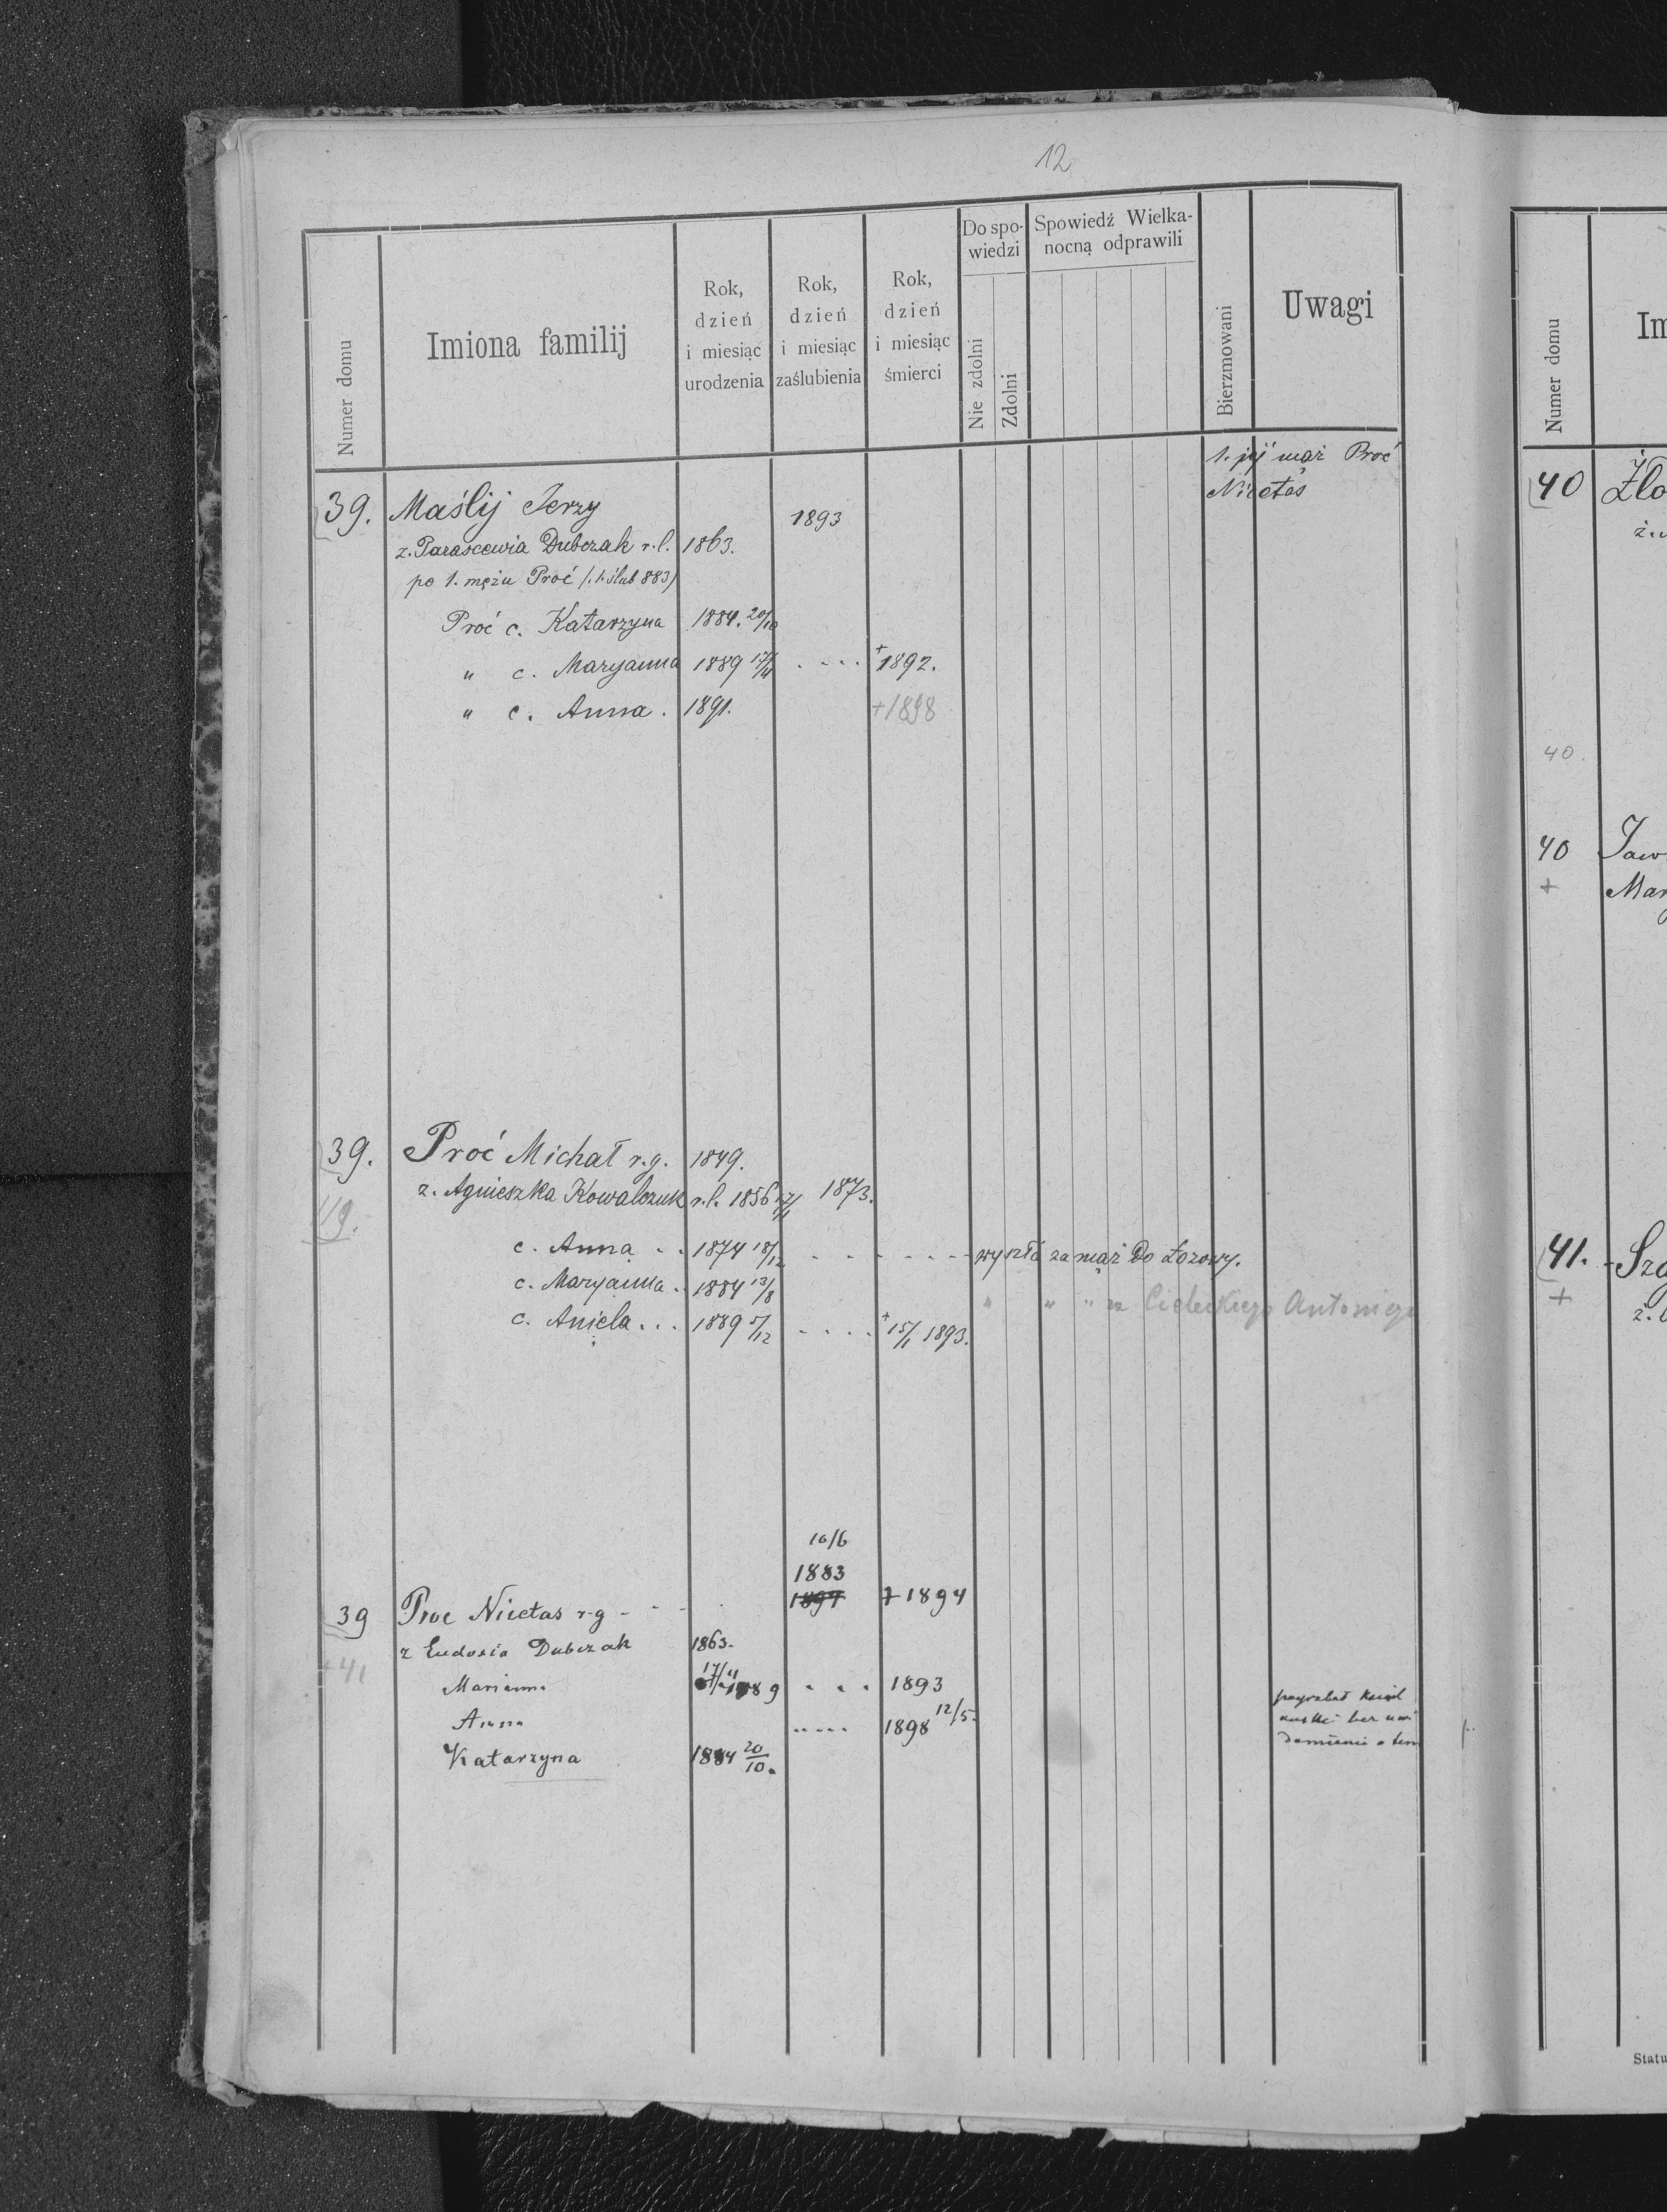 12
Numer domu
Imiona familij
Rok,
dzień
i miesiąc
urodzenia
Rok,
dzień
i miesiąc
zaślubienia
Rok,
dzień
i miesiąc
śmierci
Do spo-
wiedzi
Nie zdolni
Zdolni
Spowiedź Wielka-
nocną odprawili
Bierzmowani
Uwagi
1. jej mąż Proć
Nicetas
39. Maślij Jerzy 1893
ż. Parascewia Dubczak r.l. 1863.
po 1. mężu Proć (.1. ślub 883)
Proć c. Katarzyna 1884. 20/10
" c. Maryanna 1889 17/4 .... +1892.
" c. Anna. 1891. +1898
39. Proć Michał r.g. 1849.
ż. Agnieszka Kowalczuk r.l. 1856 1873.
119.
c. Anna .. 1874 18/12 wyszła za mąż do Łozowy.
c. Maryanna .. 1884 13/8 " " " za Cieleckiego Antoniego
c. Aniela ... 1889 5/12 .... +15/1 1893.
10/6
1883
39 Proc Nicetas r-g - 1894 + 1894
ż Eudosia Dubczak 1863.
+41
Marianna 17/4 1889 ... 1893
Anna ..... 1898 12/5.
Katarzyna 1884 20/10.
pogrzebał ksiądz
ruski bez uwi
domienia o tem
Numer domu
Im
40 Żło
ż.
40.
40 Jaw
+ Mar
41. Szc
+ ż.
Statu